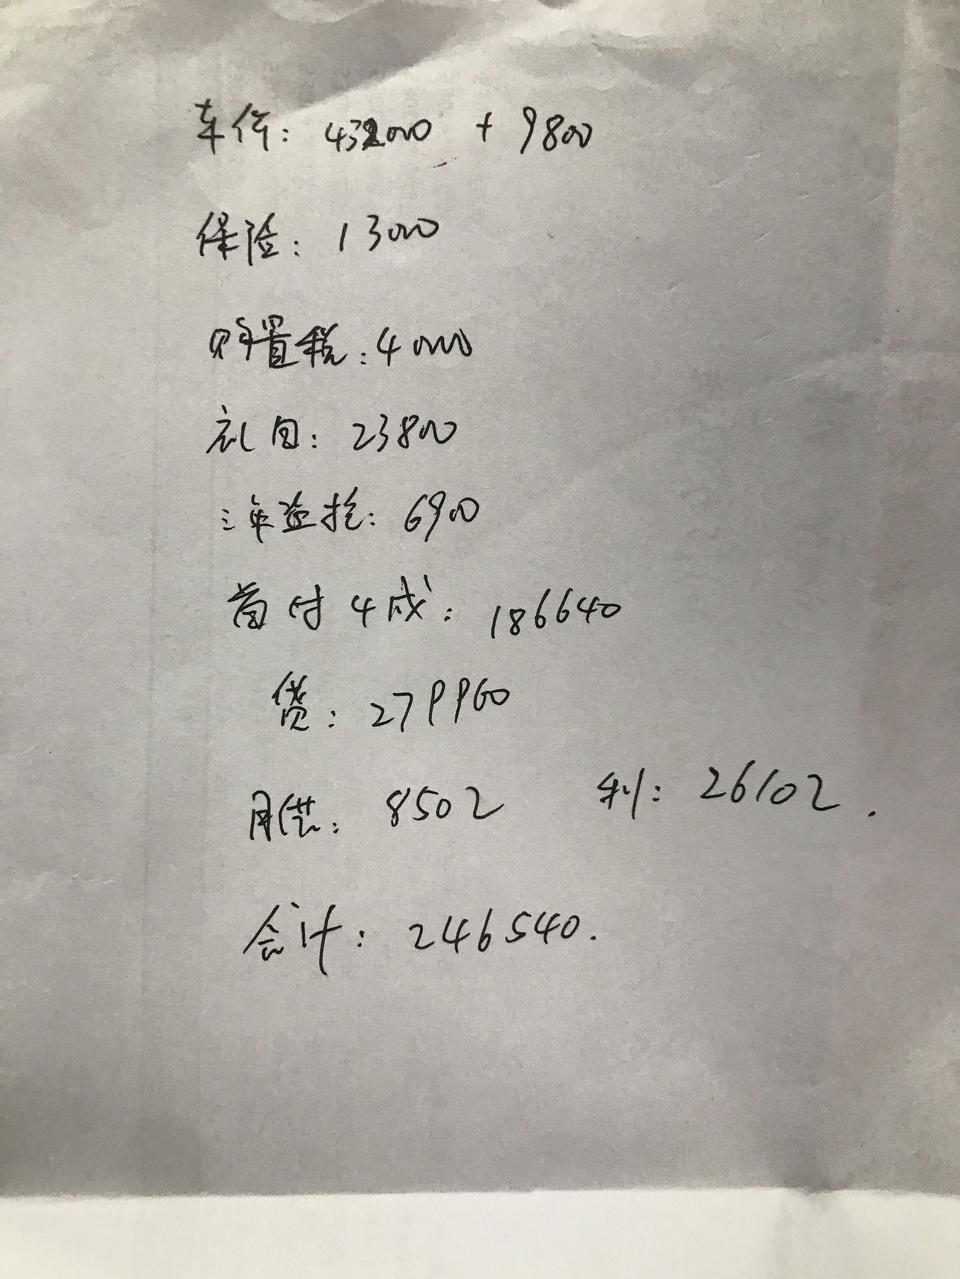 车价: + 9800
保险: 13000
购置税: 40000
礼包: 23800
三年盗抢: 6900
首付4成: 186640
贷: 279960
月供: 8502 利: 26102.
合计: 246540.